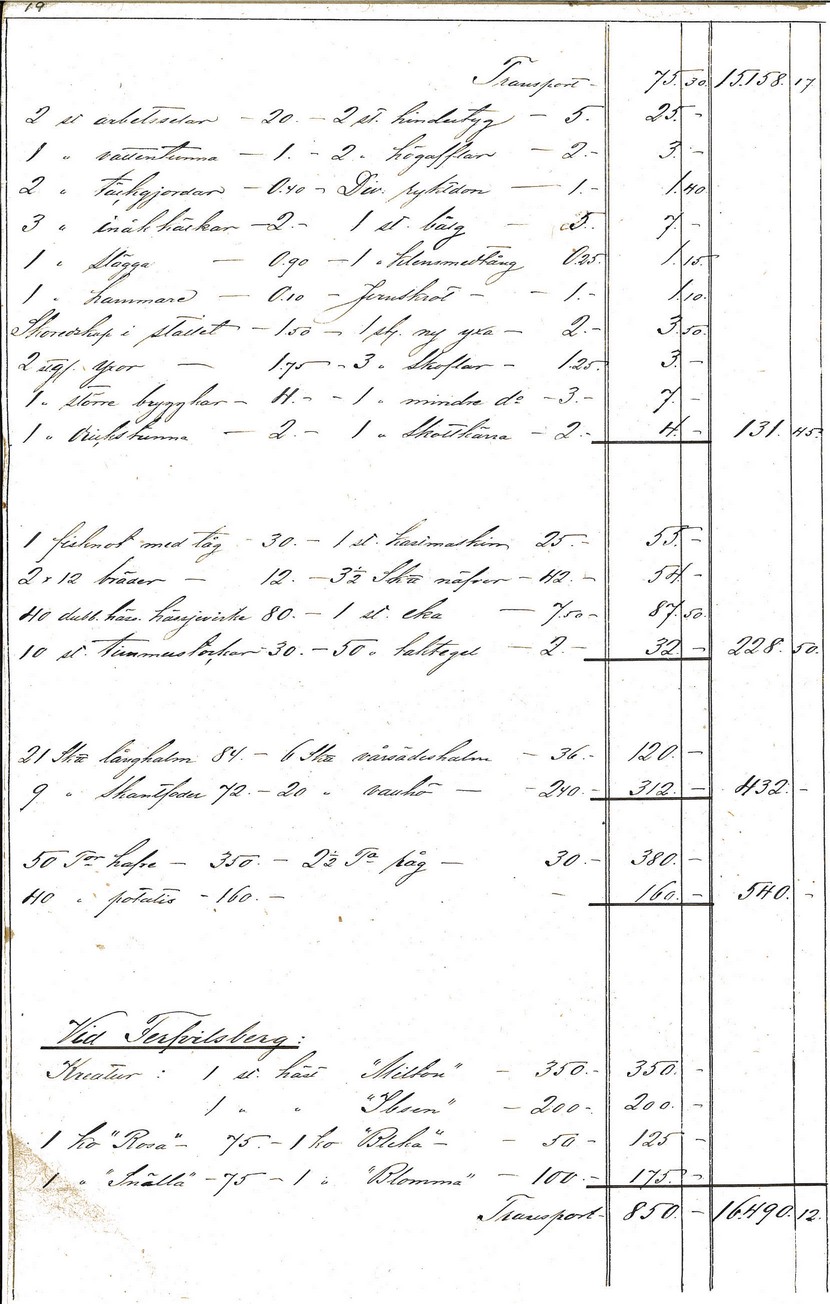 19
Transport - 75.30 15.158.17
2 st arbetsselar - 20. - 2 st. hindertyg - 5. 25. -
1 " vattentunna - 1. - 2 " högafflar - 2. - 3. -
2 " täckgjordar - 0.40 - Div. ryktdon - 1. - 1.40
3 " - 2. - 1 st. bälg - 5. 7. -
1 " slägga - 0.90 - 1 " 0.25. 1.15.
1 " hammare - 0.10 - Jernskrot - - 1. - 1.10.
Skoredskap i stallet - 1.50 - 1 st. ny yxa - 2. - 3.50.
2 utgl. yxor - 1.75 - 3 " skoflar - 1.25. 3. -
1 " större bryggkar - 4. - - 1 " mindre do - 3. - 7. -
1 " drickstunna - 2. - 1 " Skottkärra - 2. - 4. - 131.45.
1 fisknot med tåg - 30. - 1 st. kastmaskin 25. - 55. -
2 x 12 bräder - 12. - 3½ Ska näfver - 42. - 54 -
40 dubb. häss. hässjevirke 80. - 1 st. eka - 7.50 - 87.50.
10 st. timmerstockar - 30. - 50 " taktegel - 2. - 32. - 228.50.
21 Ska långhalm 84. - 6 Ska vårsädeshalm - 36. - 120. -
9 " 72. - 20 " vallhö - - 240. - 312. - 432. -
50 Tor hafre - 350. - 2½ Ta råg - 30. - 380. -
40 " potatis - 160. - - 160. - 540. -
Vid Terfvilsberg:
Kreatur : 1 st. häst "Milton" - 350. - 350. -
1 " " "Ibsen" - 200 - 200. -
1 ko "Rosa" - 75. - 1 ko "Bleka" - - 50 - 125 -
1 " "Snälla" - 75 - 1 " "Blomma" - 100. - 175. -
Transport - 850. - 16.490.12.